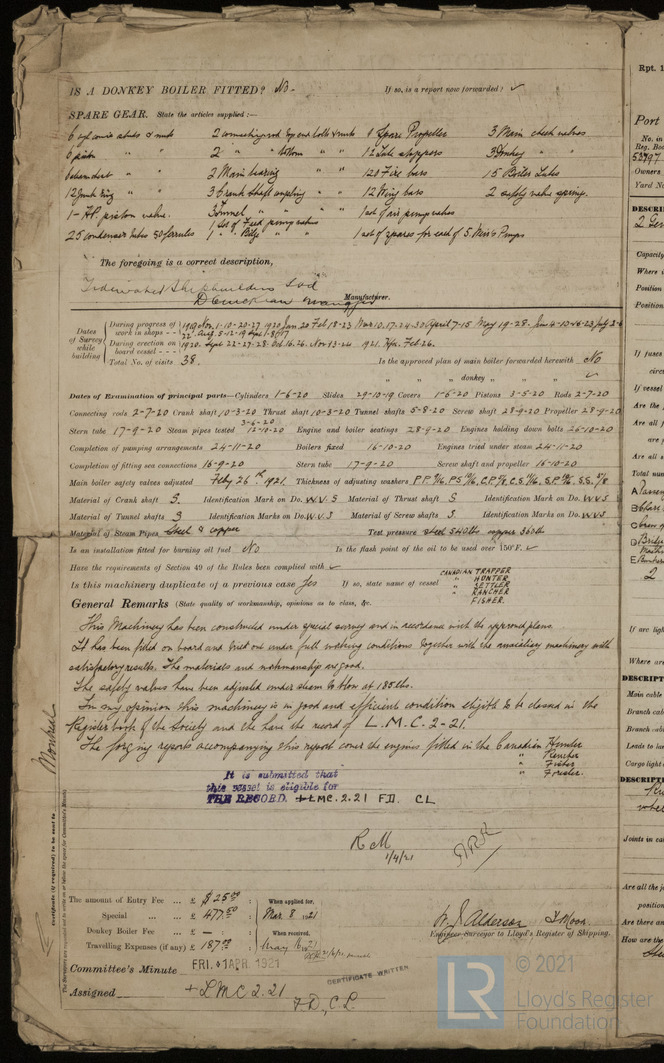 IS A DONKEY BOILER FITTED? No - If so, is a report now forwarded? ✓
SPARE GEAR. State the articles supplied :—
6 cylinder studs & nuts 2 connecting rod top end bolts & nuts 1 Spare Propeller 3 Main check valves
6 piston " " 2 " " bottom " " 12 Tube stoppers 3 Donkey " "
6 chamber " " 2 Main bearing " " 128 Fire bars 15 Boiler Tubes
12 junk ring " 3 Crank shaft coupling " " 12 Wing bars 2 safety valve springs.
1 - H.P. piston valve. 3 Tunnel " " " " 1 set of air pump valves
25 condenser tubes 50 ferrules 1 set of Feed pump valves 1 set of spares for each of 5 Weir's Pumps
1 " " Bilge " "
The foregoing is a correct description,
Tidewater Shipbuilders Ltd
Manufacturer.
Dates of Survey while building
During progress of work in shops - - 1919 Nov. 1-10-20-27 1920 Jan 20 Feb 18-23 Mar 10.17-24-30 April 7-15 May 19-28
During erection on board vessel - - - 1920. Sept 22-27-28. Oct 16.26. Nov 13-24 1921. Feb. 26.
Total No. of visits 38. Is the approved plan of main boiler forwarded herewith No
" " " donkey " " " ✓
Dates of Examination of principal parts—Cylinders 1-6-20 Slides 29-10-19 Covers 1-6-20 Pistons 3-5-20 Rods 2-7-20
Connecting rods 2-7-20 Crank shaft 10-3-20 Thrust shaft 10-3-20 Tunnel shafts 5-8-20 Screw shaft 28-9-20 Propeller 28-9-20
Stern tube 17-9-20 Steam pipes tested 3-6-20 12-10-20 Engine and boiler seatings 28-9-20 Engines holding down bolts 26-10-20
Completion of pumping arrangements 24-11-20 Boilers fixed 16-10-20 Engines tried under steam 24-11-20
Completion of fitting sea connections 16-9-20 Stern tube 17-9-20 Screw shaft and propeller 16-10-20
Main boiler safety valves adjusted Feby 26th 1921. Thickness of adjusting washers
Material of Crank shaft S. Identification Mark on Do. W.V.S Material of Thrust shaft S Identification Mark on Do. W.V.S
Material of Tunnel shafts S Identification Marks on Do. W.V.S Material of Screw shafts S. Identification Marks on Do. W.V.S
Material of Steam Pipes Steel & copper Test pressure steel 540 lbs copper 360 lb
Is an installation fitted for burning oil fuel No Is the flash point of the oil to be used over 150°F. ✓
Have the requirements of Section 49 of the Rules been complied with ✓
Is this machinery duplicate of a previous case Yes If so, state name of vessel CANADIAN TRAPPER
" HUNTER
" SETTLER
" RANCHER
FISHER.
General Remarks (State quality of workmanship, opinions as to class, &c.
This Machinery has been constructed under special survey and in accordance with the approved plans.
It has been fitted on board and tried out under full working conditions together with the auxiliary machinery with
satisfactory results. The materials and workmanship are good.
The safety valves have been adjusted under steam to blow at 185 lbs.
In my opinion this machinery is in good and efficient condition eligible to be classed in the
Register book of the Society and the have the record of L.M.C. 2-21.
The forging reports accompanying this report cover the engines fitted in the Canadian Hunter
" Rancher
" Fisher
" Forester.
It is submitted that
this vessel is eligible for
THE RECORD. + LMC. 2.21 F.D. CL
1/4/21
Montreal
Certificate (if required) to be sent to
The amount of Entry Fee ... £ $25.00 When applied for,
Special ... £ 477.50 Mar 8 1921
Donkey Boiler Fee ... £ — : When received,
Travelling Expenses (if any) £ 187
W. J. Alderson
Engineer Surveyor to Lloyd's Register of Shipping.
Committee's Minute FRI. 1 APR. 1921
CERTIFICATE WRITTEN
Assigned + LMC 2.21
F.D., C.L.
© 2021
LR Lloyd's Register
Foundation
Rpt. 1
Port
No. in
Reg. Boo
53797
Owners
Yard No
DESCRI
Capacity
Where i
Position
Position
If fuses
circ
If vessel
Are the
Are all f
are
Are all s
Total num
2
If arc ligh
Where are
DESCRIPT
Main cable
Branch cab
Branch cab
Leads to la
Cargo light
DESCRIPT
Joints in ca
Are all the jo
position
Are there an
How are the